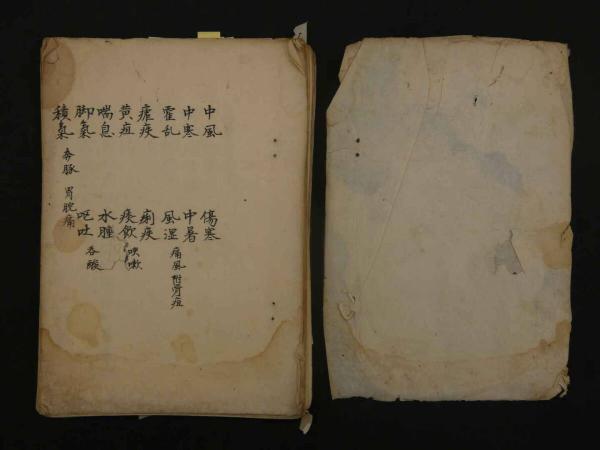 中風 傷寒
中寒 中暑
霍乱 風湿
痛風 附骨疽
瘧疾 痢疾
咳嗽
黄疸 痰飲
喘息 水腫
呑酸
脚氣 呕吐
積氣 奔豚 胃脘痛